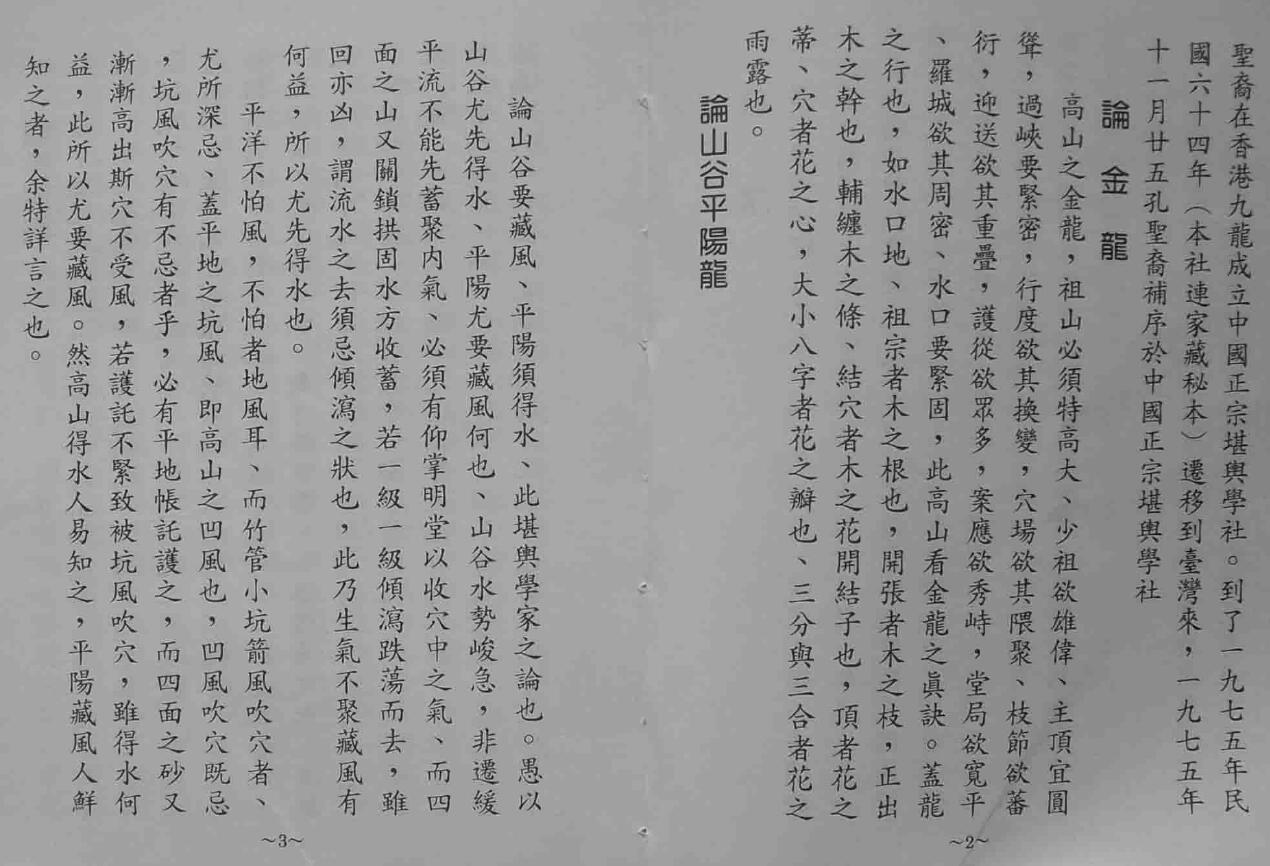 聖裔在香港九龍成立中國正宗堪輿學社。到了一九七五年民
國六十四年（本社連家藏秘本）遷移到臺灣來，一九七五年
十一月廿五孔聖裔補序於中國正宗堪輿學社
論金龍
高山之金龍，祖山必須特高大、少祖欲雄偉、主頂宜圓
聳，過峽要緊密，行度欲其換變，穴場欲其隈聚、枝節欲蕃
衍，迎送欲其重疊，護從欲眾多，案應欲秀峙，堂局欲寬平
、羅城欲其周密、水口要緊固，此高山看金龍之眞訣。蓋龍
之行也，如水口地、祖宗者木之根也，開張者木之枝，正出
木之幹也，輔纏木之條、結穴者木之花開結子也，頂者花之
蒂、穴者花之心，大小八字者花之瓣也、三分與三合者花之
雨露也。
論山谷平陽龍
~2~
論山谷要藏風、平陽須得水、此堪輿學家之論也。愚以
山谷尤先得水、平陽尤要藏風何也、山谷水勢峻急，非遷緩
平流不能先蓄聚內氣、必須有仰掌明堂以收穴中之氣、而四
面之山又關鎖拱固水方收蓄，若一級一級傾瀉跌蕩而去，雖
回亦凶，謂流水之去須忌傾瀉之狀也，此乃生氣不聚藏風有
何益，所以尤先得水也。
平洋不怕風，不怕者地風耳、而竹管小坑箭風吹穴者、
尤所深忌、蓋平地之坑風、即高山之凹風也，凹風吹穴既忌
，坑風吹穴有不忌者乎，必有平地帳託護之，而四面之砂又
漸漸高出斯穴不受風，若護託不緊致被坑風吹穴，雖得水何
益，此所以尤要藏風。然高山得水人易知之，平陽藏風人鮮
知之者，余特詳言之也。
~3~